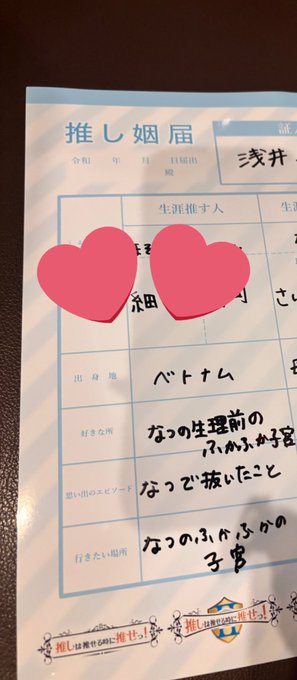 推し姻届
令和　年　月　日届出
殿
証
浅井
生涯推す人
生涯
細
さい
出身地
ベトナム
好きな所
なつの生理前の
ふかふか子宮
思い出のエピソード
なつで抜いたこと
行きたい場所
なつのふかふかの
子宮
推しは推せる時に推せっ!
推しは推せる時に推せっ!